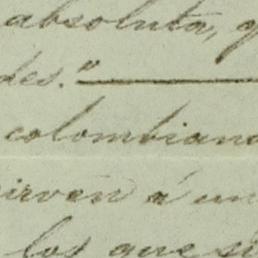 absoluta, q
des."
colombiano
irven á un
los que si